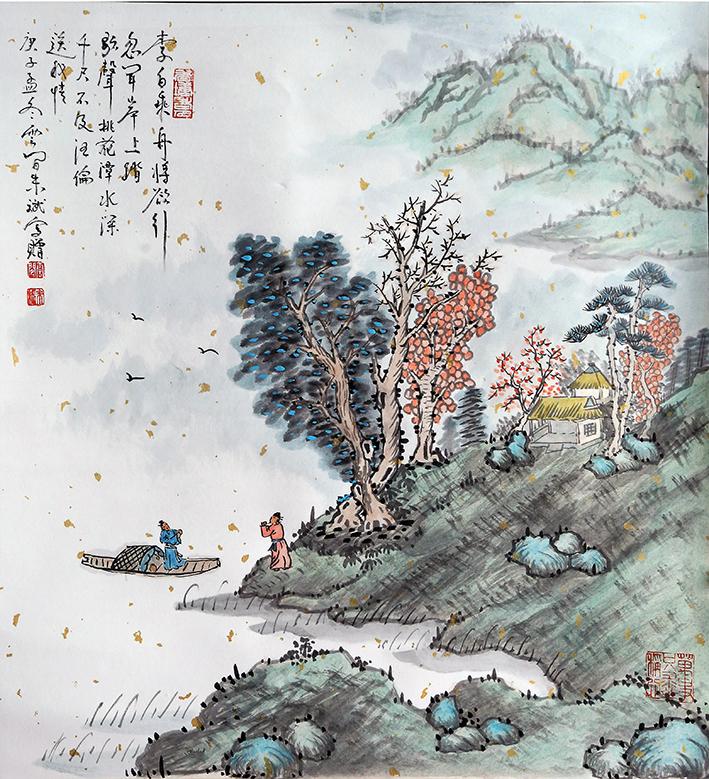 李白乘舟將欲行
忽聞岸上踏
歌聲桃花潭水深
千尺不及汪倫
送我情
庚子孟冬雲間朱斌寫贈